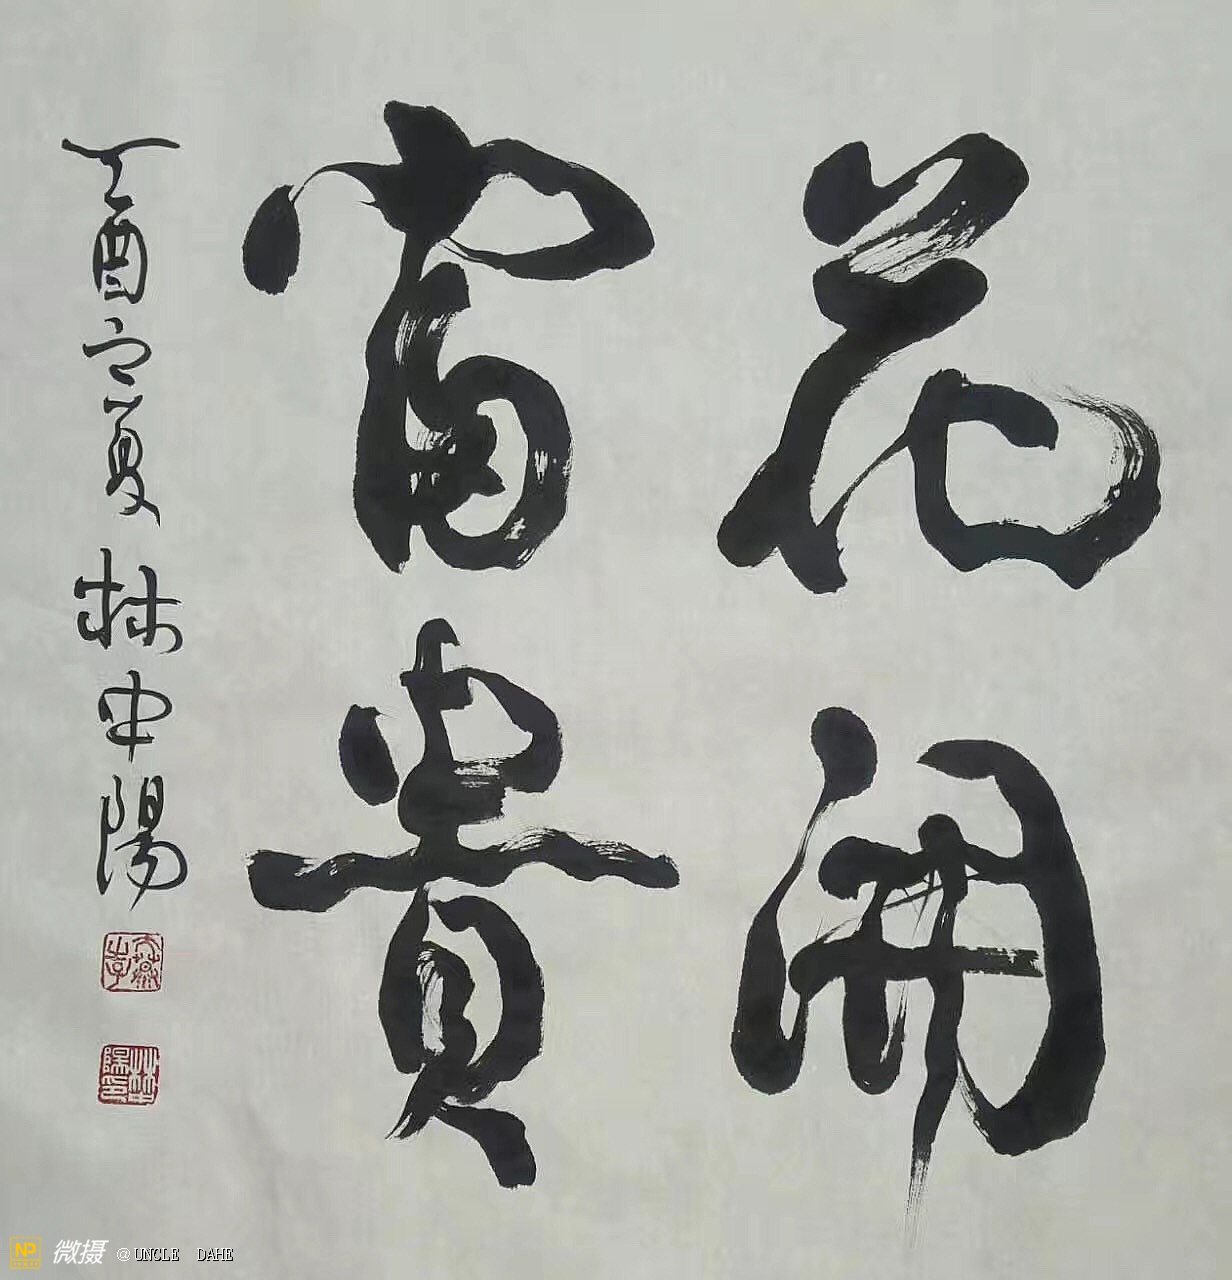 花開
富貴
丁酉之夏林中陽
NP 微摄 @UNCLE DAHE